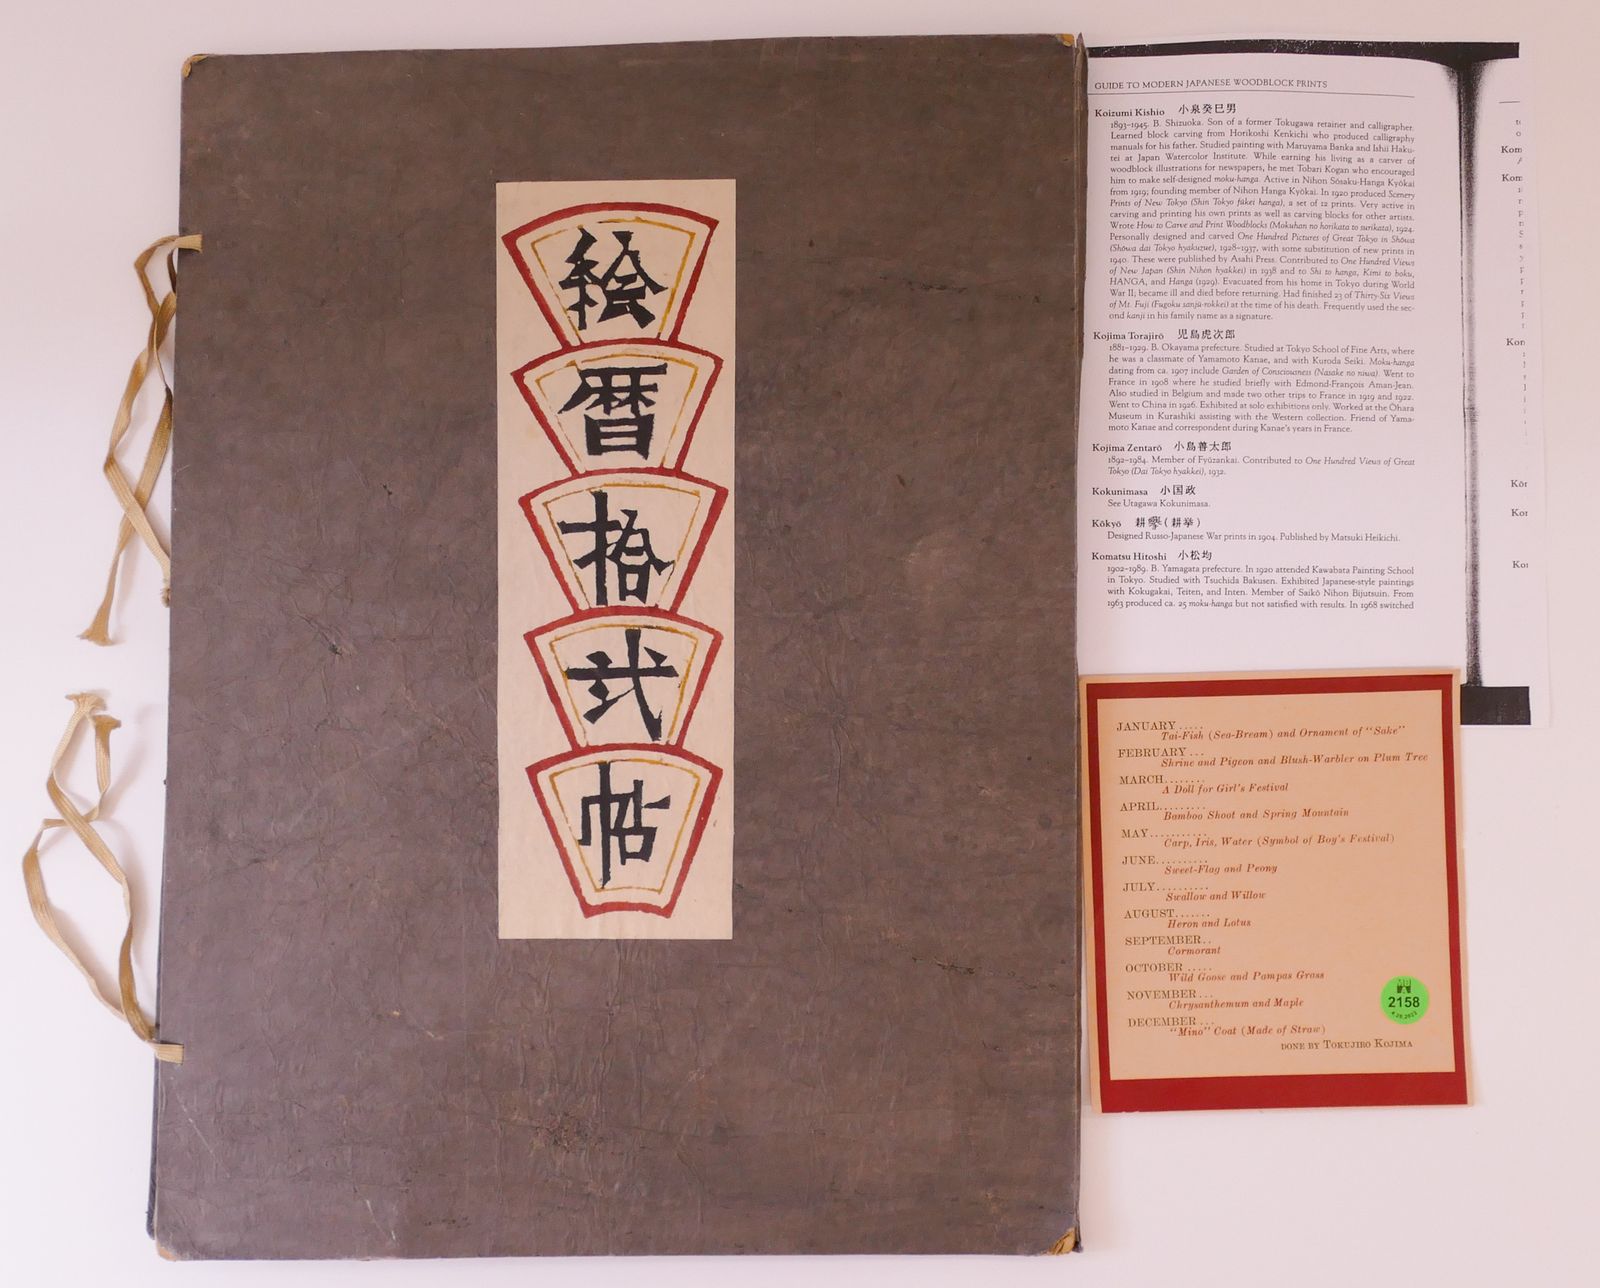 絵
暦
拾
弐
帖
GUIDE TO MODERN JAPANESE WOODBLOCK PRINTS
Koizumi Kishio 小泉癸巳男
1893–1945. B. Shizuoka. Son of a former Tokugawa retainer and calligrapher.
Learned block carving from Horikoshi Kenkichi who produced calligraphy
manuals for his father. Studied painting with Maruyama Banka and Ishii Haku-
tei at Japan Watercolor Institute. While earning his living as a carver of
woodblock illustrations for newspapers, he met Tobari Kogan who encouraged
him to make self-designed moku-hanga. Active in Nihon Sōsaku-Hanga Kyōkai
from 1919; founding member of Nihon Hanga Kyōkai. In 1920 produced Scenery
Prints of New Tokyo (Shin Tokyo fūkei hanga), a set of 12 prints. Very active in
carving and printing his own prints as well as carving blocks for other artists.
Wrote How to Carve and Print Woodblocks (Mokuhan no horikata to surikata), 1924.
Personally designed and carved One Hundred Pictures of Great Tokyo in Shōwa
(Shōwa dai Tokyo hyakuzue), 1928–1937, with some substitution of new prints in
1940. These were published by Asahi Press. Contributed to One Hundred Views
of New Japan (Shin Nihon hyakkei) in 1938 and to Shi to hanga, Kimi to boku,
HANGA, and Hanga (1929). Evacuated from his home in Tokyo during World
War II; became ill and died before returning. Had finished 23 of Thirty-Six Views
of Mt. Fuji (Fugoku sanjū-rokkei) at the time of his death. Frequently used the sec-
ond kanji in his family name as a signature.
Kojima Torajirō 児島虎次郎
1881–1929. B. Okayama prefecture. Studied at Tokyo School of Fine Arts, where
he was a classmate of Yamamoto Kanae, and with Kuroda Seiki. Moku-hanga
dating from ca. 1907 include Garden of Consciousness (Nasake no niwa). Went to
France in 1908 where he studied briefly with Edmond-François Aman-Jean.
Also studied in Belgium and made two other trips to France in 1919 and 1922.
Went to China in 1926. Exhibited at solo exhibitions only. Worked at the Ōhara
Museum in Kurashiki assisting with the Western collection. Friend of Yama-
moto Kanae and correspondent during Kanae's years in France.
Kojima Zentarō 小島善太郎
1892–1984. Member of Fyūzankai. Contributed to One Hundred Views of Great
Tokyo (Dai Tokyo hyakkei), 1932.
Kokunimasa 小国政
See Utagawa Kokunimasa.
Kōkyo 耕 (耕挙)
Designed Russo-Japanese War prints in 1904. Published by Matsuki Heikichi.
Komatsu Hitoshi 小松均
1902–1989. B. Yamagata prefecture. In 1920 attended Kawabata Painting School
in Tokyo. Studied with Tsuchida Bakusen. Exhibited Japanese-style paintings
with Kokugakai, Teiten, and Inten. Member of Saikō Nihon Bijutsuin. From
1963 produced ca. 25 moku-hanga but not satisfied with results. In 1968 switched
Kom
Kom
Kon
Kōn
Kon
Kon
JANUARY.....
Tai-Fish (Sea-Bream) and Ornament of "Sake"
FEBRUARY...
Shrine and Pigeon and Blush-Warbler on Plum Tree
MARCH........
A Doll for Girl's Festival
APRIL.........
Bamboo Shoot and Spring Mountain
MAY...........
Carp, Iris, Water (Symbol of Boy's Festival)
JUNE..........
Sweet-Flag and Peony
JULY..........
Swallow and Willow
AUGUST.......
Heron and Lotus
SEPTEMBER..
Cormorant
OCTOBER.....
Wild Goose and Pampas Grass
NOVEMBER...
Chrysanthemum and Maple
DECEMBER...
"Mino" Coat (Made of Straw)
DONE BY TOKUJIRO KOJIMA
2158